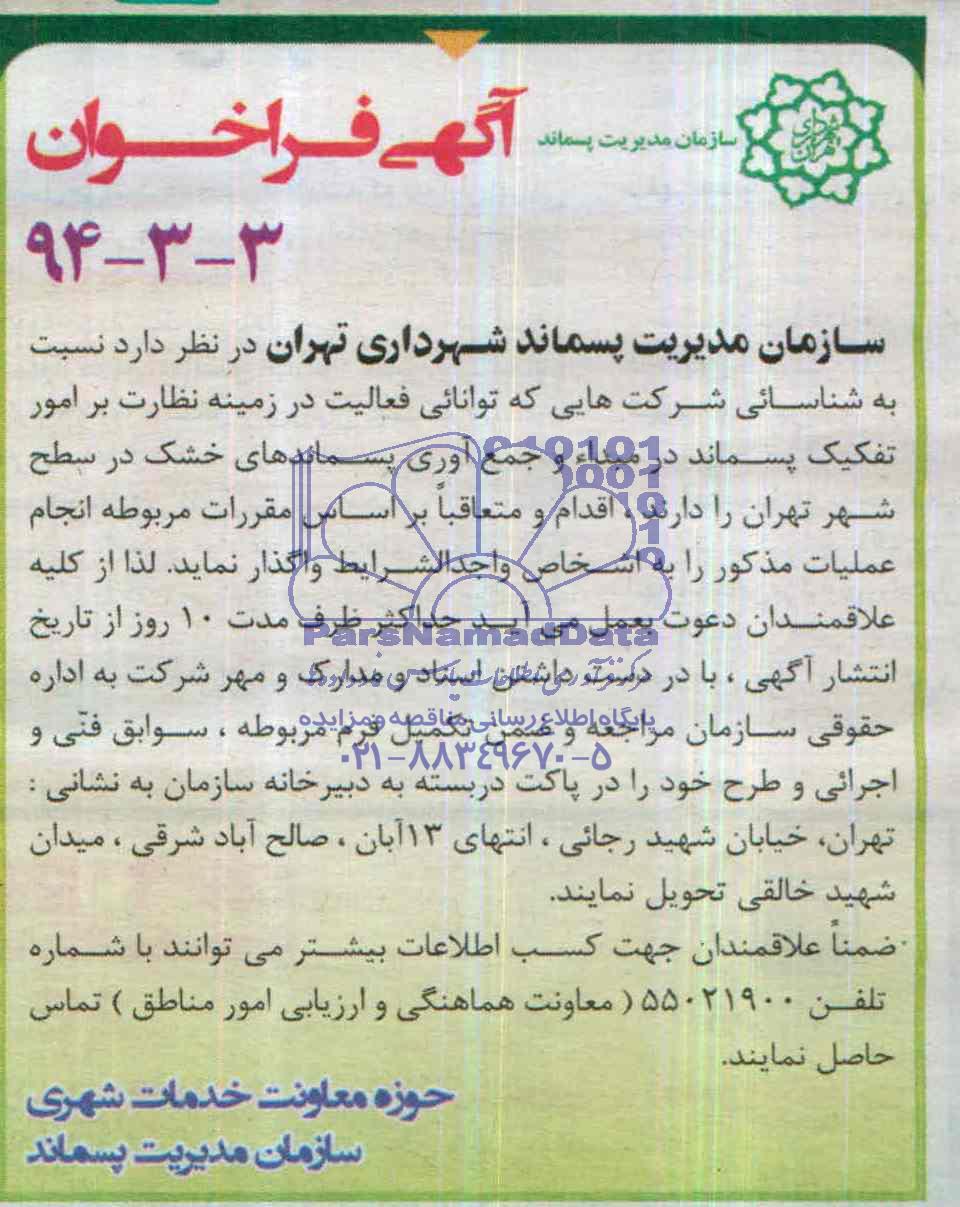 شهرداری تهران
سازمان مدیریت پسماند
آگهی فراخوان
۹۴-۳-۳
سازمان مدیریت پسماند شهرداری تهران در نظر دارد نسبت
به شناسائی شرکت هایی که توانائی فعالیت در زمینه نظارت بر امور
تفکیک پسماند در مبداء و جمع آوری پسماندهای خشک در سطح
شهر تهران را دارند ، اقدام و متعاقباً بر اساس مقررات مربوطه انجام
عملیات مذکور را به اشخاص واجدالشرایط واگذار نماید. لذا از کلیه
علاقمندان دعوت بعمل می آید حداکثر ظرف مدت ۱۰ روز از تاریخ
انتشار آگهی ، با در دست داشتن اسناد و مدارک و مهر شرکت به اداره
حقوقی سازمان مراجعه و ضمن تکمیل فرم مربوطه ، سوابق فنّی و
اجرائی و طرح خود را در پاکت دربسته به دبیرخانه سازمان به نشانی :
تهران، خیابان شهید رجائی ، انتهای ۱۳آبان ، صالح آباد شرقی ، میدان
شهید خالقی تحویل نمایند.
ضمناً علاقمندان جهت کسب اطلاعات بیشتر می توانند با شماره
تلفن ۵۵۰۲۱۹۰۰ ( معاونت هماهنگی و ارزیابی امور مناطق ) تماس
حاصل نمایند.
حوزه معاونت خدمات شهری
سازمان مدیریت پسماند
ParsNamadData
پایگاه اطلاع رسانی مناقصه و مزایده
۰۲۱-۸۸۳۴۹۶۷۰-۵